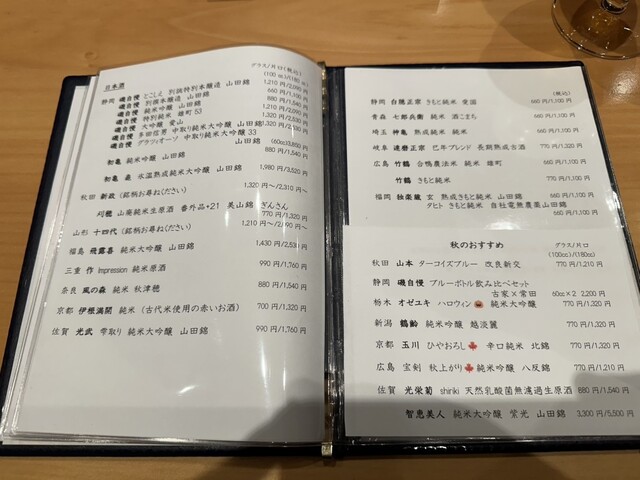 日本酒
グラス/片口(税込)
(100㏄)/(180㏄)
静岡 磯自慢 とこしえ 別誂特別本醸造 山田錦 1,210円/2,090円
磯自慢 別撰本醸造 山田錦 660円/1,100円
磯自慢 純米吟醸 山田錦 880円/1,540円
磯自慢 特別純米 雄町53
磯自慢 大吟醸 愛山
磯自慢 多田信男 中取り純米大吟醸
磯自慢 グラツィオーソ 中取り純米大吟醸33
880円/1,540円
初亀 純米吟醸 山田錦
初亀 亀 氷温熟成純米大吟醸 山田錦 1,980円/3,520円
秋田 新政(銘柄お尋ねください) 1,320円~/2,310円~
刈穂 山廃純米生原酒 番外品+21 美山錦 ぎんさん
770円/1,320円
山形 十四代(銘柄お尋ねください) 1,210円~/2,090円~
福島 飛露喜 純米大吟醸 山田錦 1,430円/2,530円
三重 作 Impression 純米原酒 990円/1,760円
奈良 風の森 純米 秋津穂 880円/1,540円
京都 伊根満開 純米(古代米使用の赤いお酒) 700円/1,320円
佐賀 光武 雫取り 純米大吟醸 山田錦 990円/1,760円
(税込)
静岡 白隠正宗 きもと純米 誉富士 660円/1,100円
青森 七郎兵衛 純米 酒こまち 660円/1,100円
埼玉 神亀 熟成純米 純米 660円/1,100円
岐阜 達磨正宗 巳年ブレンド 長期熟成古酒 770円/1,210円
広島 竹鶴 合鴨農法米 純米 雄町 660円/1,100円
竹鶴 きもと純米 770円/1,210円
福岡 独楽蔵 玄 熟成きもと純米 山田錦 660円/1,100円
きもと純米 自社電熱農園山田錦
660円/1,100円
秋のおすすめ
グラス/片口
(100cc)/(180cc)
秋田 山本 ターコイズブルー 改良新交 770円/1,210円
静岡 磯自慢 ブルーボトル飲み比べセット
古家×常田 60cc×2 2,200円
栃木 オゼユキ ハロウィン🎃 純米大吟醸 770円/1,320円
新潟 鶴齢 純米吟醸 越淡麗 770円/1,320円
京都 玉川 ひやおろし🍁 辛口純米 北錦 770円/1,320円
広島 宝剣 秋上がり🍁 純米吟醸 八反錦 770円/1,210円
佐賀 光栄菊 shiriki 天然乳酸菌無濾過生原酒 880円/1,540円
智恵美人 純米大吟醸 紫光 山田錦 3,300円/5,500円